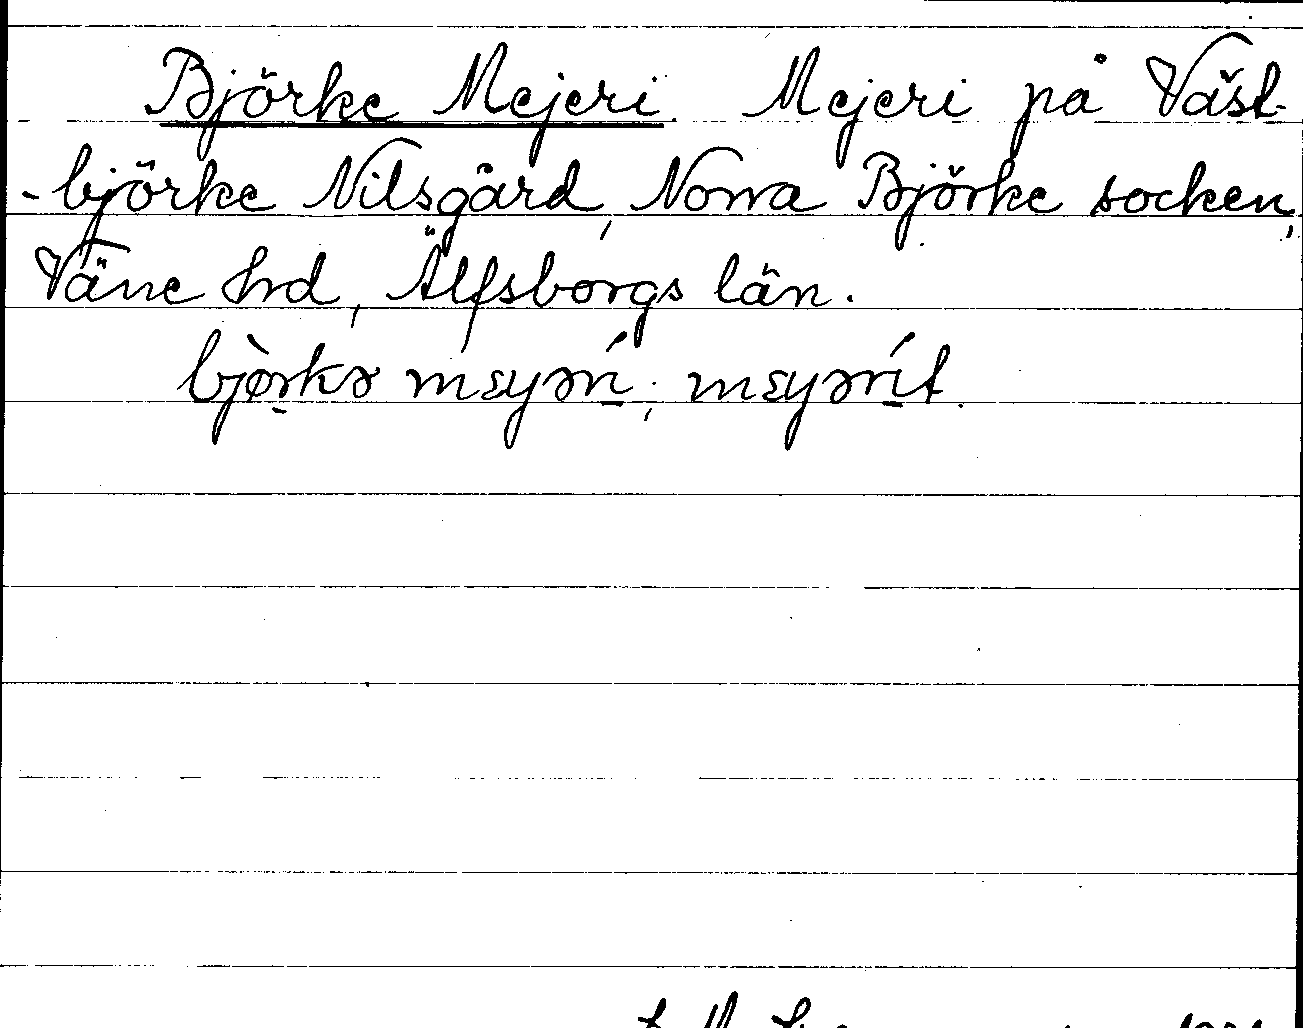 Björke Mejeri. Mejeri på Väst-
-björke Nilsgård, Norra Björke socken,
Väne hrd, Älfsborgs län.
bjò̱rkə mɛyərí̱; mɛyərí̱t.